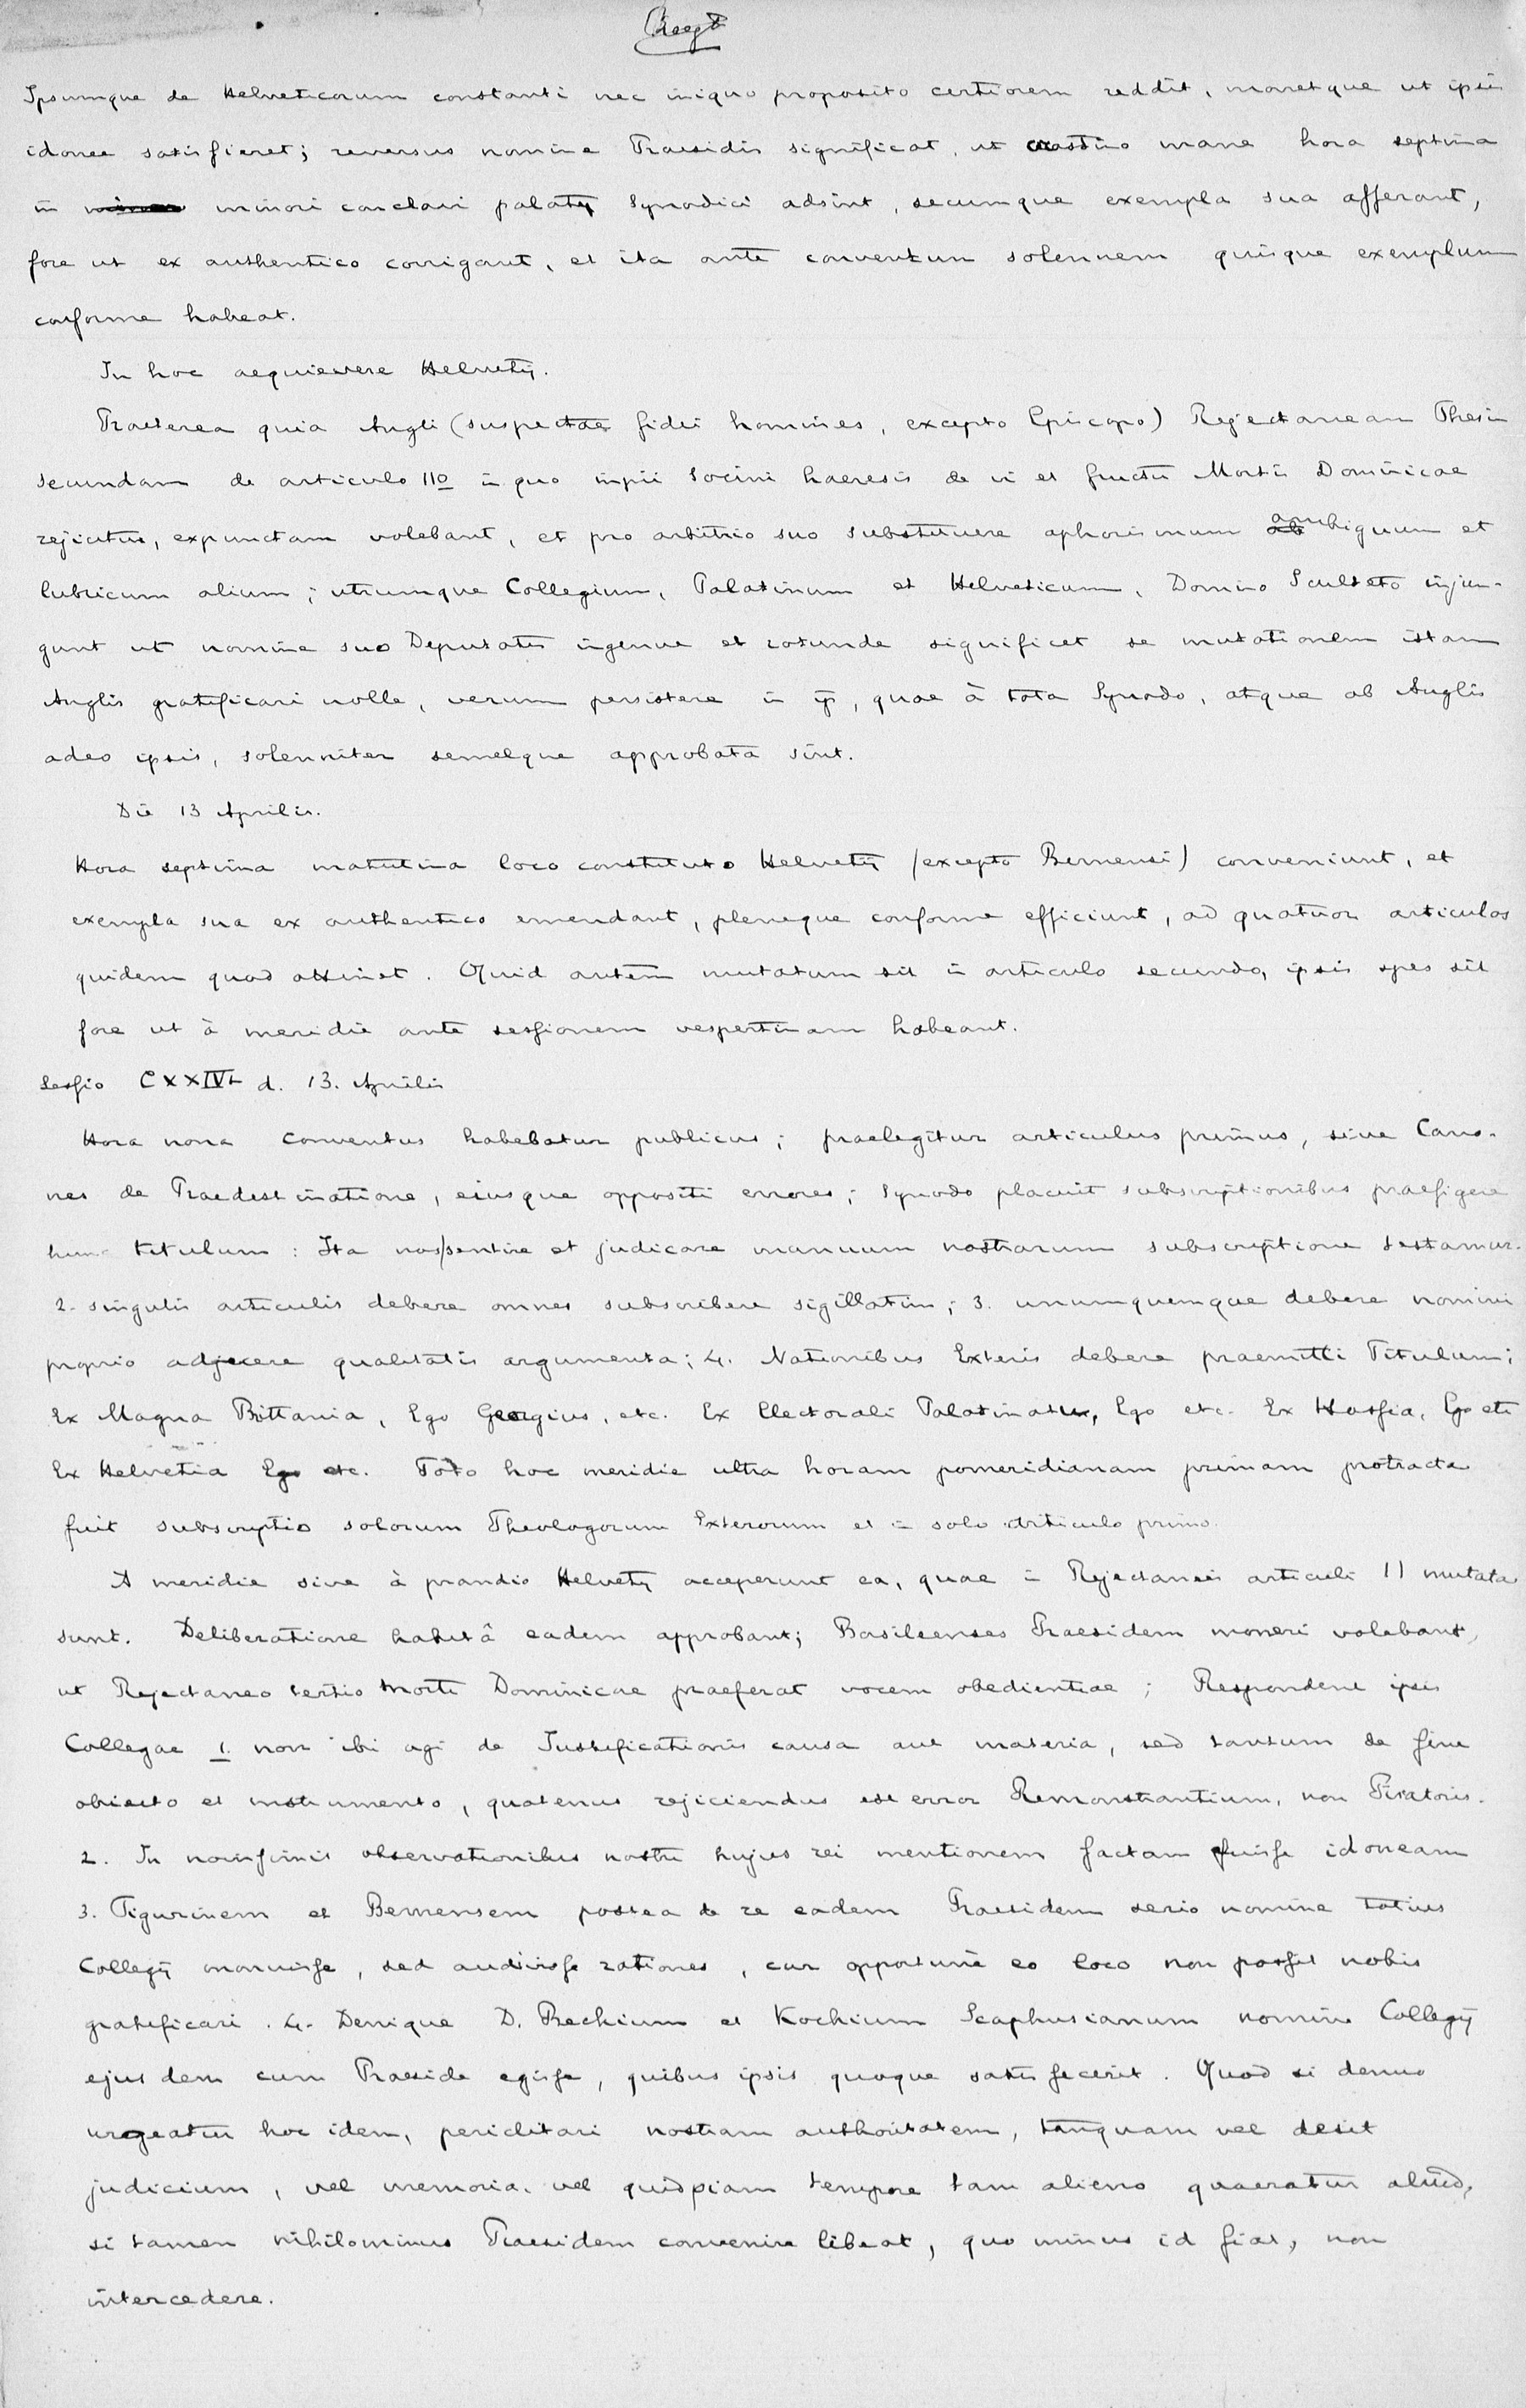 Ipsumque de Helveticorum constanti nec iniquo proposito certiorem reddit, monetque ut ipsis
idonee satisfieret; reversus nomine Praesidis significat, ut crastino mane hora septima
in minori conclavi palatij Synodici adsint, secumque exempla sua afferant,
fore ut ex authentico corrigant, et ita ante conventum solennem quisque exemplum
conforme habeat.
In hoc aequievere Helvetij.
Praeterea quia Angli (suspectae fidei homines, excepto Episcopo) Rejectaneam Thesin
secundam de articulo IIo in quo impii Socini haeresis de vi et fructu Mortis Dominicae
rejicitur, expunctam volebant, et pro arbitrio suo substituere aphorismum ambiguum et
lubricum alium; utrumque Collegium, Palatinum et Helveticum, Domino Sculteto injun-
gunt ut nomine suo Deputatis ingenue et rotunde significet se mutationem istam
Anglis gratificari nolle, verum persistere in ijs, quae à tota Synodo, atque ab Anglis
adeo ipsis, solenniter semelque approbata sint.
Die 13 Aprilis.
Hora septima matutina loco constituto Helvetij (excepto Bernensi) conveniunt, et
exempla sua ex authentico emendant, pleneque conforme efficiunt, ad quatuor articulos
quidem quod attinet. Quid autem mutatum sit in articulo secundo, ipsis spes sit
fore ut à meridie ante sessionem vespertinam habeant.
Sessio CXXIV d. 13. Aprilis
Hora nona conventus habebatur publicus; praelegitur articulus primus, sive Cano-
nes de Praedestinatione, eiusque oppositi errores; Synodo placuit subscriptionibus praefigere
hunc titulum: Ita nos sentire et judicare manuum nostrarum subscriptione testamur.
2. singulis articulis debere omnes subscribere sigillatim; 3. unumquemque debere nomini
proprio adjicere qualitatis argumenta; 4. Nationibus Exteris debere praemitti Titulum;
Ex Magna Brittania, Ego Georgius, etc. Ex Electorali Palatinatu, Ego etc. Ex Hassia, Ego etc
Ex Helvetia Ego etc. Toto hoc meridie ultra horam pomeridianam primam protracta
fuit subscriptio solorum Theologorum Exterorum et in solo articulo primo.
A meridie sive à prandio Helvetij acceperunt ea, quae in Rejectaneis articuli II mutata
sunt. Deliberatione habitâ eadem approbant; Basileenses Praesidem moneri volebant,
ut Rejectaneo tertio morti Dominicae praeferat vocem obedientiae; Respondent ipsis
Collegae 1. non ibi agi de Justificationis causa aut materia, sed tantum de fine
obiecto et instrumento, quatenus rejiciendus est error Remonstrantium, non Piscatoris.
2. In novissimis observationibus nostris hujus rei mentionem factam fuisse idoneam
3. Tigurinem et Bernensem postea de re eadem Praesidem serio nomine totius
Collegij monuisse, sed audivisse rationes, cur opportune eo loco non possit nobis
gratificari. 4. Denique D. Beckium et Kochium Scaphusianum nomine Collegij
ejusdem cum Praeside egisse, quibus ipsis quoque satisfecerit. Quod si denuo
urgeatur hoc idem, periclitari nostram authoritatem, tanquam vel desit
judicium, vel memoria, vel quidpiam tempore tam alieno quaeratur aliud,
si tamen nihilominus Praesidem convenire libeat, quo minus id fiat, non
intercedere.